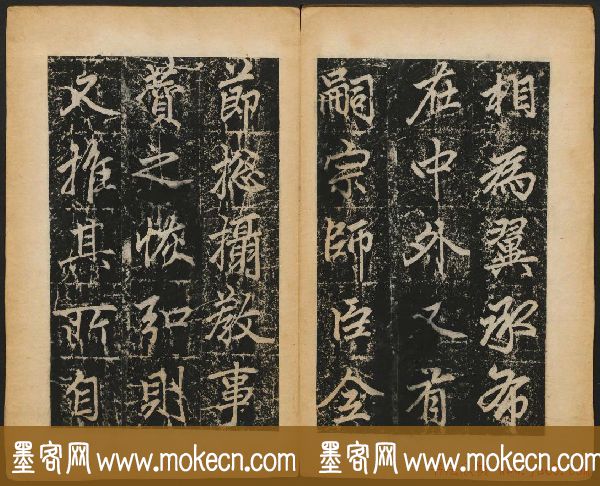 相為翼承布
在中外又有
嗣宗師臣全
節揔攝教事
賛之恢弘則
又推其所自
墨客网 www.mokecn.com 墨客网 www.mokecn.com